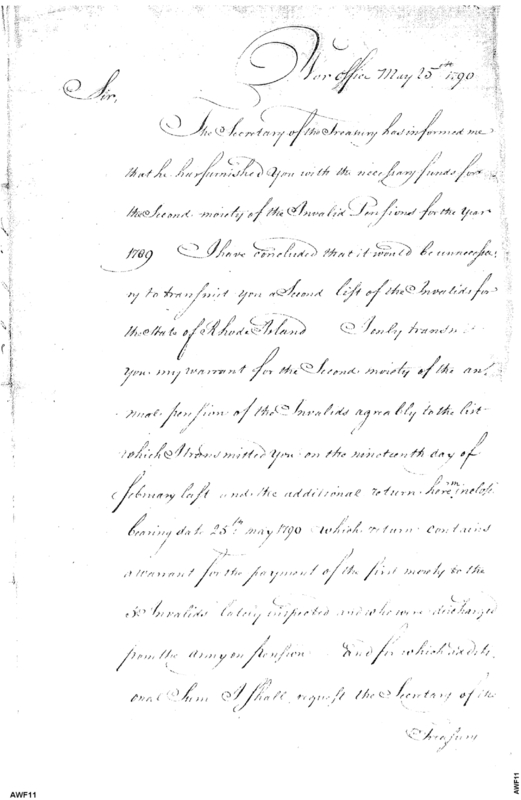 War office May 25th 1790
Sir,
The Secretary of the Treasury has informed me
that he has furnished you with the necessary funds for
the Second moiety of the Invalid Pensions for the Year
1789 I have concluded that it would be unnecessa-
ry to transmit you a Second list of the Invalids for
the State of Rhode Island I only
you my warrant for the Second moiety of the an-
nual pension of the Invalids agreably to the list
which I transmitted you on the nineteenth day of
february last and the additional return herein inclosed
bearing date 25th may 1790 which return contains
a warrant for the payment of the first moiety to the
Invalids lately inspected and who were discharged
from the army on pension And for which addit-
ional Sum I shall request the Secretary of the
Treasury
AWF11
AWF11